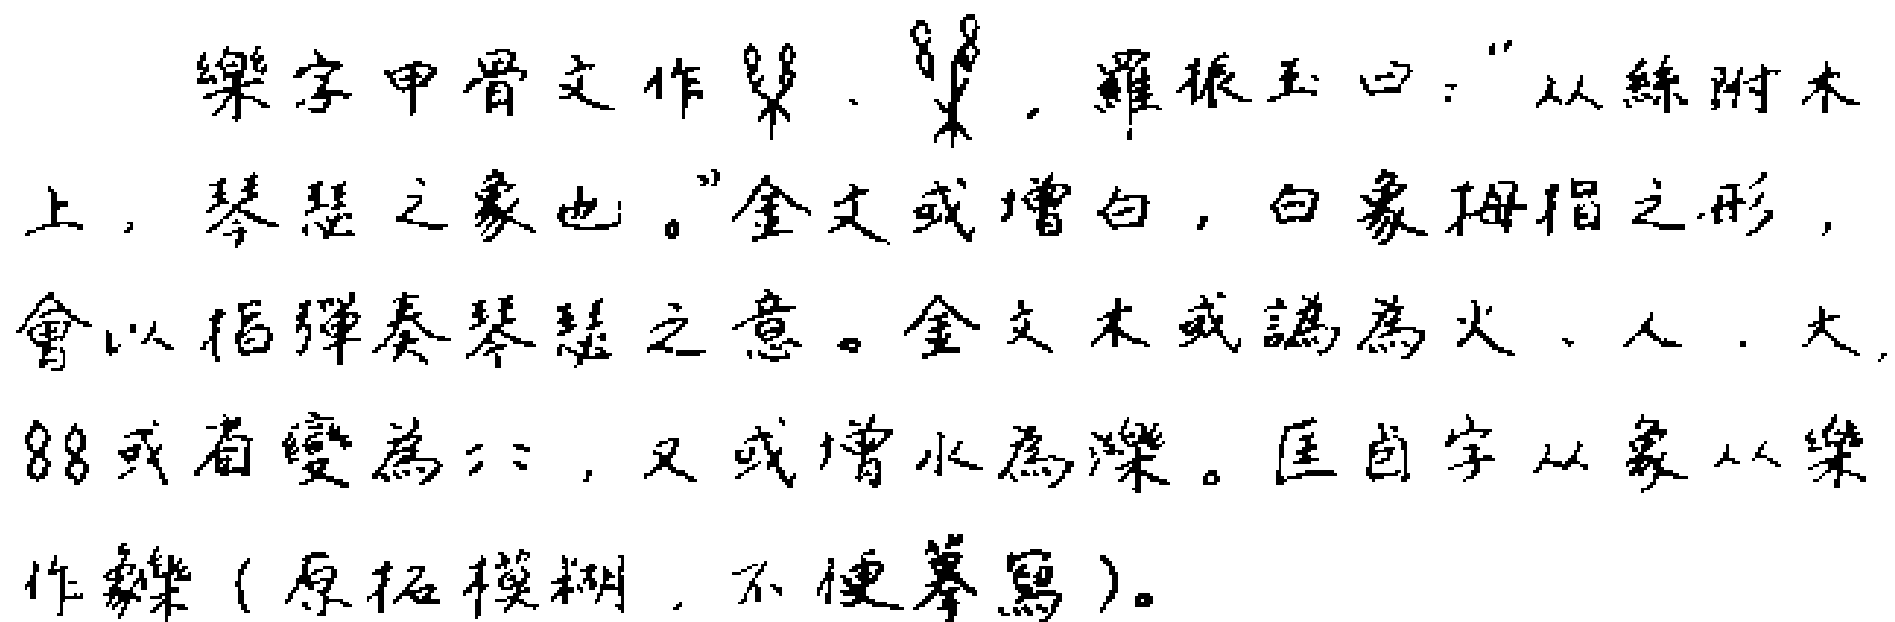 樂字甲骨文作、，羅振玉曰：“从絲附木
上，琴瑟之象也。”金文或增白，白象拇指之形，
會以指彈奏琴瑟之意。金文木或譌為火、人、大，
或省變為，又或增水為濼。匡卣字从象从樂
作（原拓模糊，不便摹寫）。